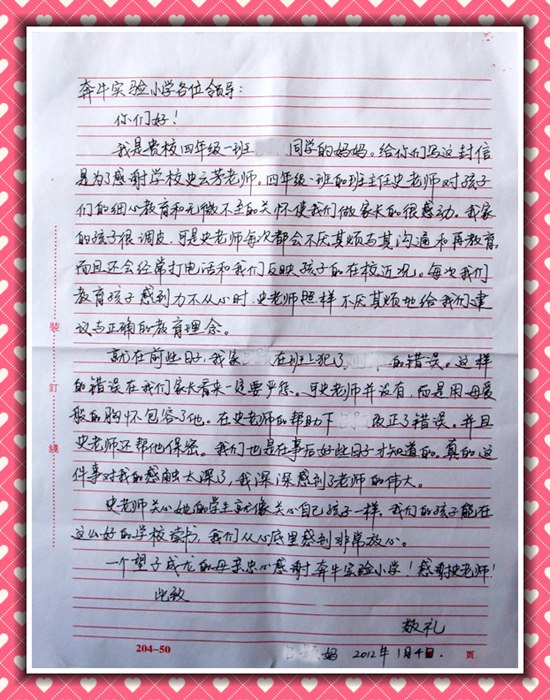 奔牛实验小学各位领导：
你们好！
我是贵校四年级一班 同学的妈妈。给你们写这封信
是为了感谢学校史云芳老师。四年级一班的班主任史老师对孩子
们的细心教育和无微不至的关怀使我们做家长的很感动。我家
的孩子很调皮，可是史老师每次都会不厌其烦与其沟通和再教育，
而且还会经常打电话和我们反映孩子的在校近况。每次我们
教育孩子感到力不从心时，史老师照样不厌其烦地给我们建
议与正确的教育理念。
就在前些日子，我家 在班上犯了 的错误。这样
的错误在我们家长看来一定要严惩。可史老师并没有，而是用母爱
般的胸怀包容了他。在史老师的帮助下 改正了错误。并且
史老师还帮他保密。我们也是在事后好些日子才知道的。真的这
件事对我的感触太深了，我深深感到了老师的伟大。
史老师关心她的学生就像关心自己孩子一样，我们的孩子能在
这么好的学校读书，我们从心底里感到非常放心。
一个望子成龙的母亲忠心感谢奔牛实验小学！感谢史老师！
此致
敬礼
妈 2012年1月4日
装
订
线
204-50
页
页